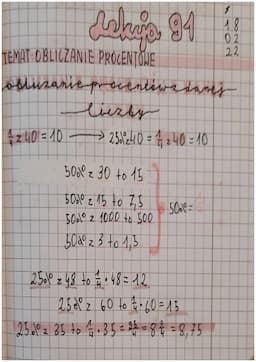 Lekcja 91
1.8
02
22
TEMAT: OBLICZANIE PROCENTOWE
obliczanie procentów z danej
liczby
1/4 z 40 = 10 → 25% z 40 = 1/4 z 40 = 10
50% z 30 to 15
50% z 15 to 7,5
50% z 1000 to 500
50% z 3 to 1,5
50% =
25% z 48 to 1/4 · 48 = 12
25% z 60 to 1/4 · 60 = 15
25% z 35 to 1/4 · 35 = 35/4 = 8 3/4 = 8,75